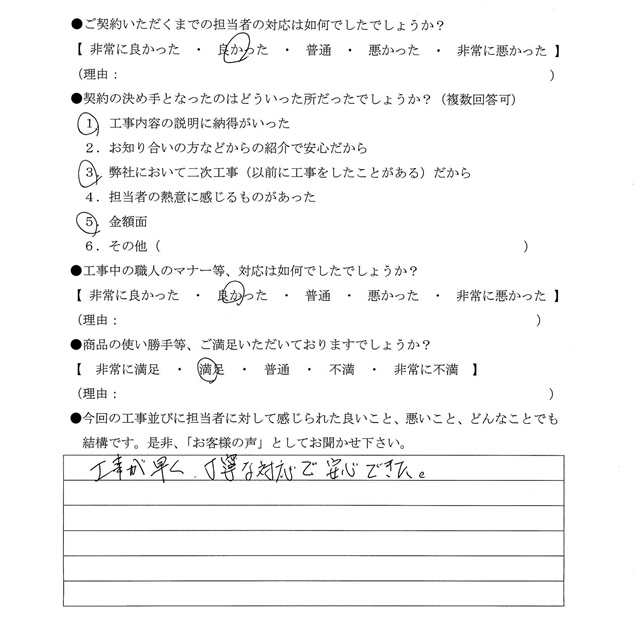 ●ご契約いただくまでの担当者の対応は如何でしたでしょうか？
【 非常に良かった ・ 良かった ・ 普通 ・ 悪かった ・ 非常に悪かった 】
（理由： ）
●契約の決め手となったのはどういった所だったでしょうか？（複数回答可）
１．工事内容の説明に納得がいった
２．お知り合いの方などからの紹介で安心だから
３．弊社において二次工事（以前に工事をしたことがある）だから
４．担当者の熱意に感じるものがあった
５．金額面
６．その他（ ）
●工事中の職人のマナー等、対応は如何でしたでしょうか？
【 非常に良かった ・ 良かった ・ 普通 ・ 悪かった ・ 非常に悪かった 】
（理由： ）
●商品の使い勝手等、ご満足いただいておりますでしょうか？
【 非常に満足 ・ 満足 ・ 普通 ・ 不満 ・ 非常に不満 】
（理由： ）
●今回の工事並びに担当者に対して感じられた良いこと、悪いこと、どんなことでも
結構です。是非、「お客様の声」としてお聞かせ下さい。
工事が早く、丁寧な対応で安心できた。